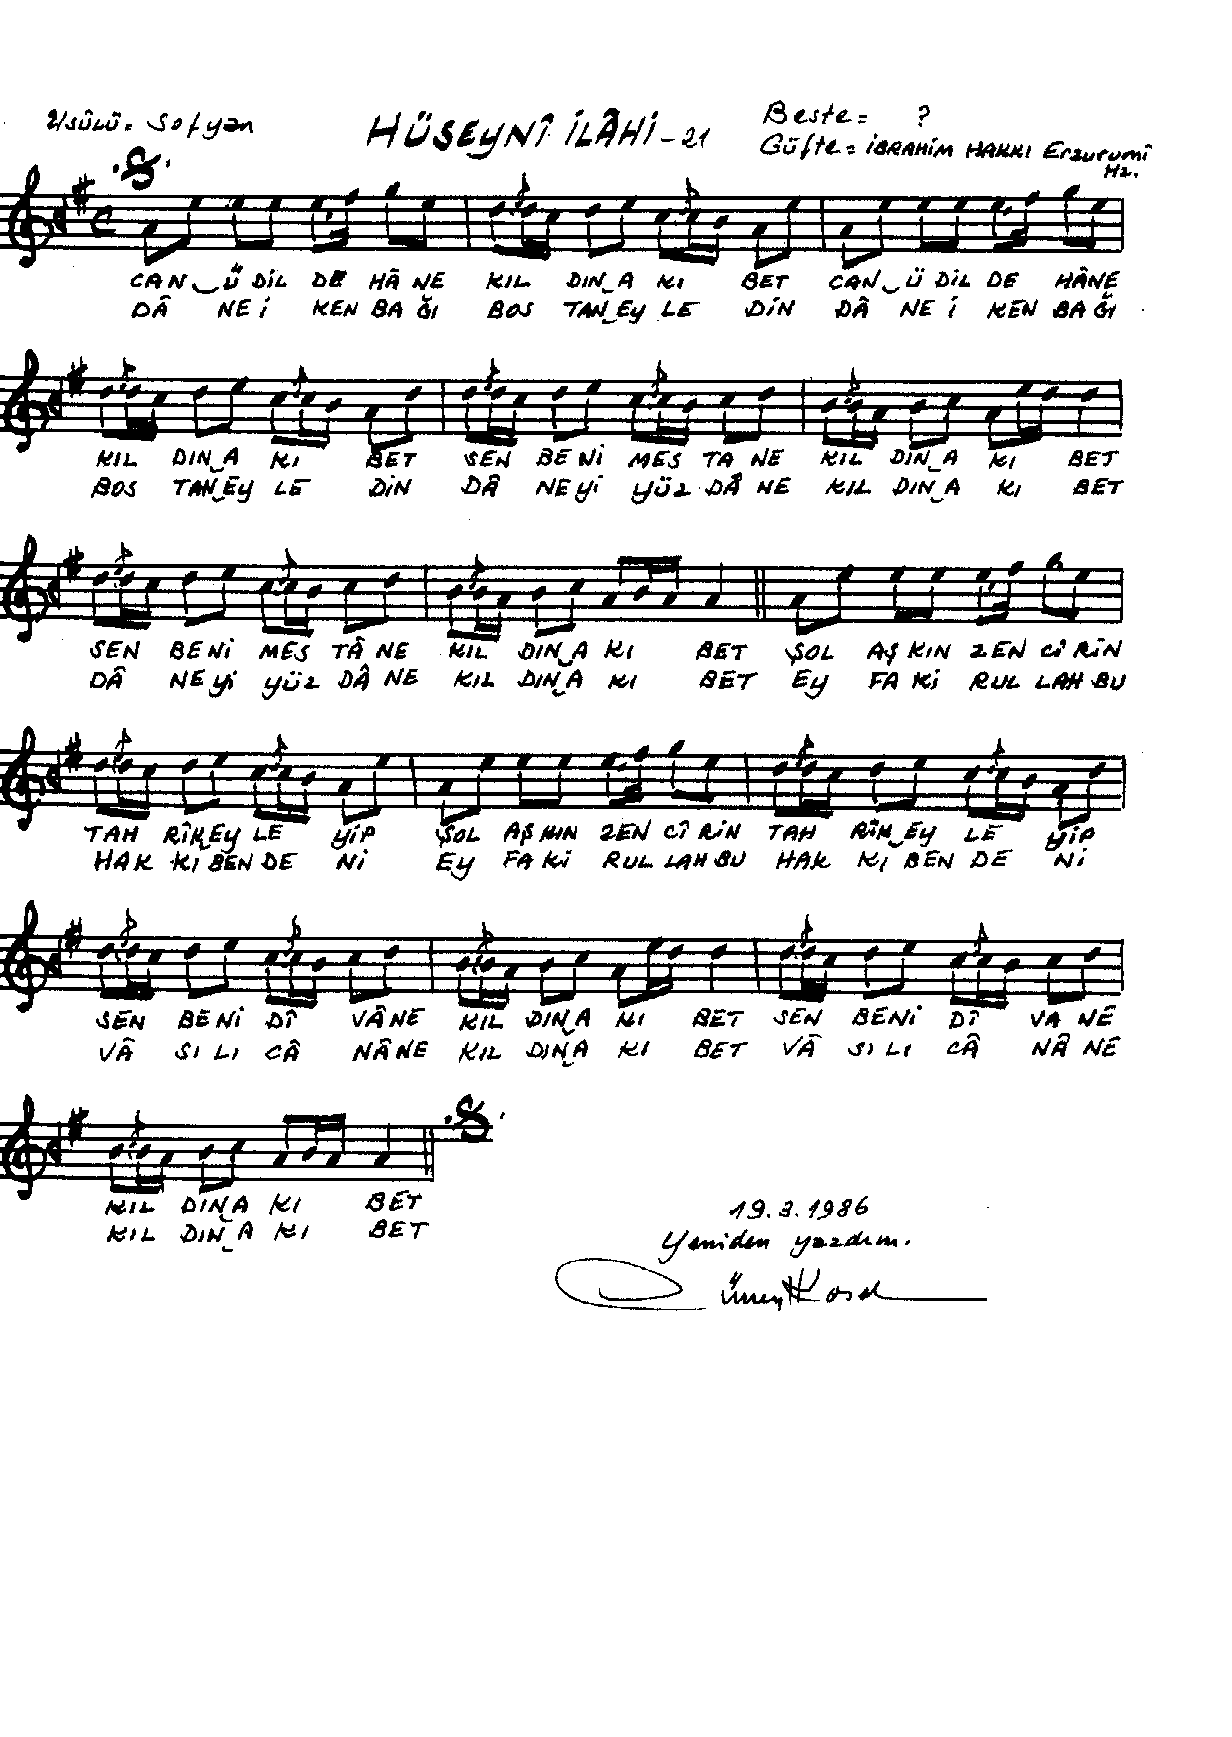 Usûlü = Sofyan
HÜSEYNÎ İLÂHİ - 21
Beste = ?
Güfte = İBRAHİM HAKKI Erzurumî
Hz.
CAN Ü DİL DE HÂ NE KIL DIN A KI BET CAN Ü DİL DE HÂNE
DÂ NE İ KEN BA ĞI BOS TAN EY LE DİN DÂ NE İ KEN BA ĞI
KIL DIN A KI BET SEN BE Nİ MES TA NE KIL DIN A KI BET
BOS TAN EY LE DİN DÂ NE Yİ YÜZ DÂ NE KIL DIN A KI BET
SEN BE Nİ MES TÂ NE KIL DIN A KI BET ŞOL AŞ KIN ZEN CÎ RİN
DÂ NE Yİ YÜZ DÂ NE KIL DIN A KI BET EY FA Kİ RUL LAH BU
TAH RÎK EY LE YİP ŞOL AŞ KIN ZEN CÎ RİN TAH RÎK EY LE YİP
HAK KI BEN DE Nİ EY FA Kİ RUL LAH BU HAK KI BEN DE Nİ
SEN BE Nİ DÎ VÂNE KIL DIN A KI BET SEN BE Nİ DÎ VA NE
VÂ SI LI CÂ NÂNE KIL DIN A KI BET VÂ SI LI CÂ NÂ NE
KIL DIN A KI BET
KIL DIN A KI BET
19.3.1986
Yeniden yazdım.